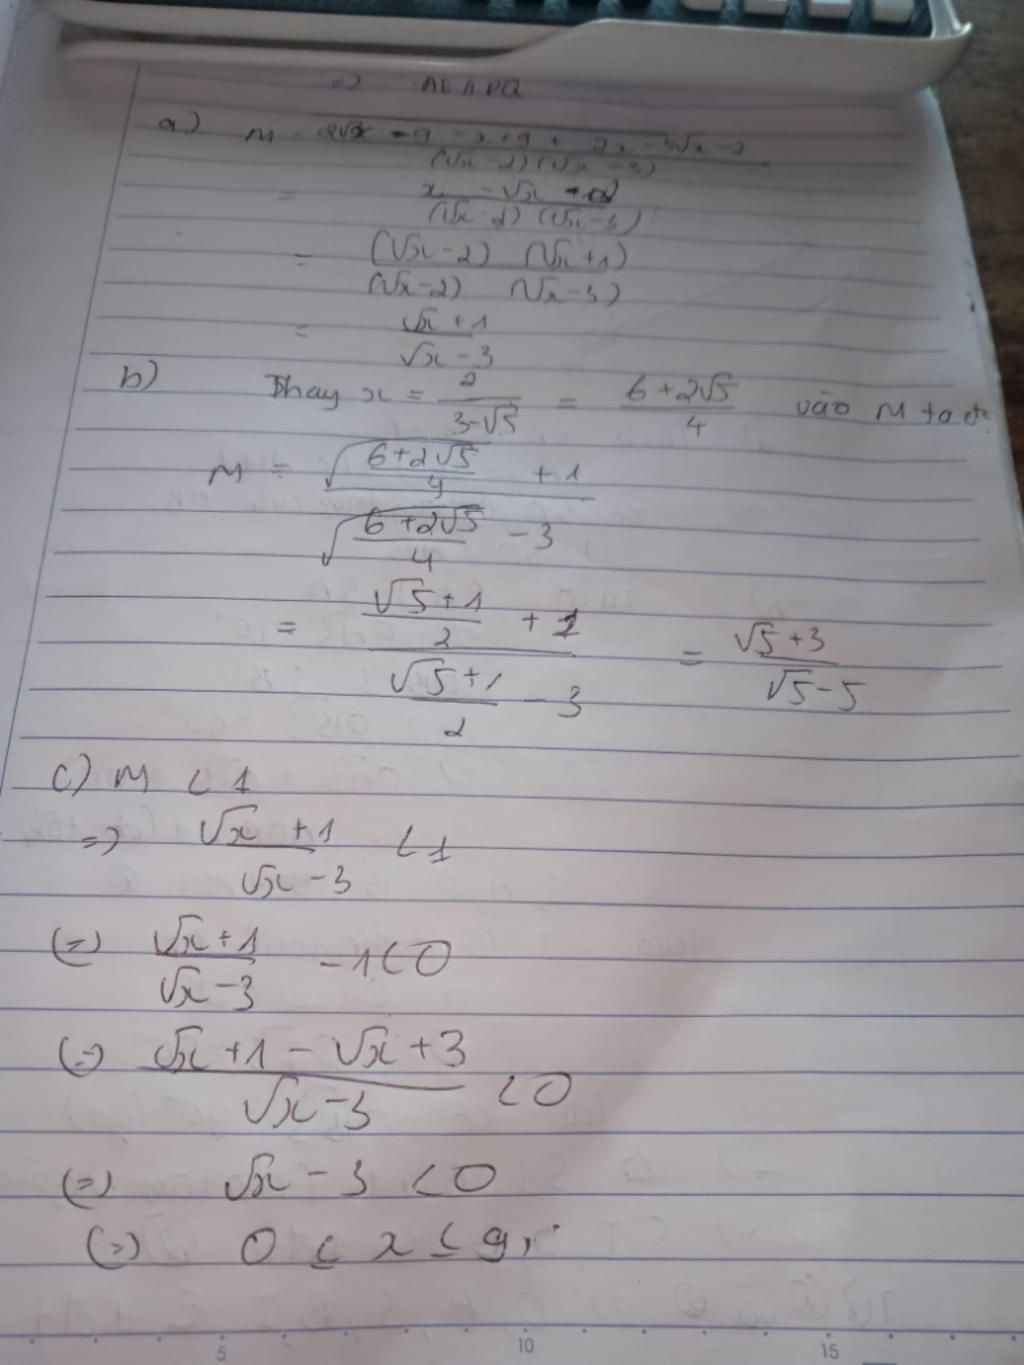 => AE ⊥ PQ
a) M = 2√x - 9 - x + 9 + 2x - 3√x - 2 / (√x - 2)(√x - 3)
= x - √x - 2 / (√x - 2)(√x - 3)
= (√x - 2)(√x + 1) / (√x - 2)(√x - 3)
= √x + 1 / √x - 3
b) Thay x = 2 / 3-√5 = 6 + 2√5 / 4 vào M ta đc
M = √(6+2√5 / 4) + 1 / √(6+2√5 / 4) - 3
= (√5+1 / 2 + 1) / (√5+1 / 2 - 3) = √5+3 / √5-5
c) M < 1
=> √x + 1 / √x - 3 < 1
(=) √x+1 / √x-3 - 1 < 0
(=) √x + 1 - √x + 3 / √x - 3 < 0
(=) √x - 3 < 0
(=) 0 ≤ x ≤ 9
5 10 15